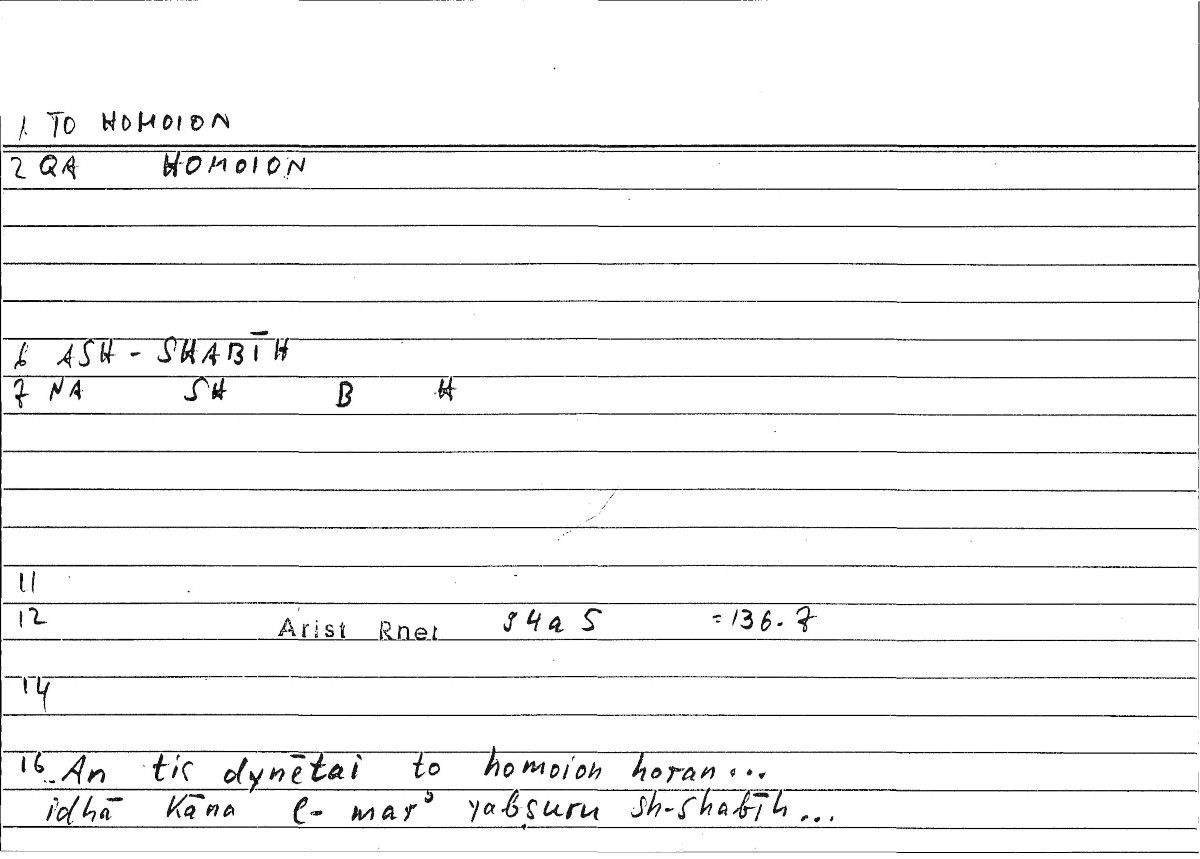 1. TO HOMOION
2 QA HOMOION
6 ASH-SHABĪH
7 NA SH B H
11
12 Arist Rhet 94a 5 =136.7
14
16 An tis dynētai to homoion horan...
idhā kāna l-marʾ yabṣuru sh-shabīh...